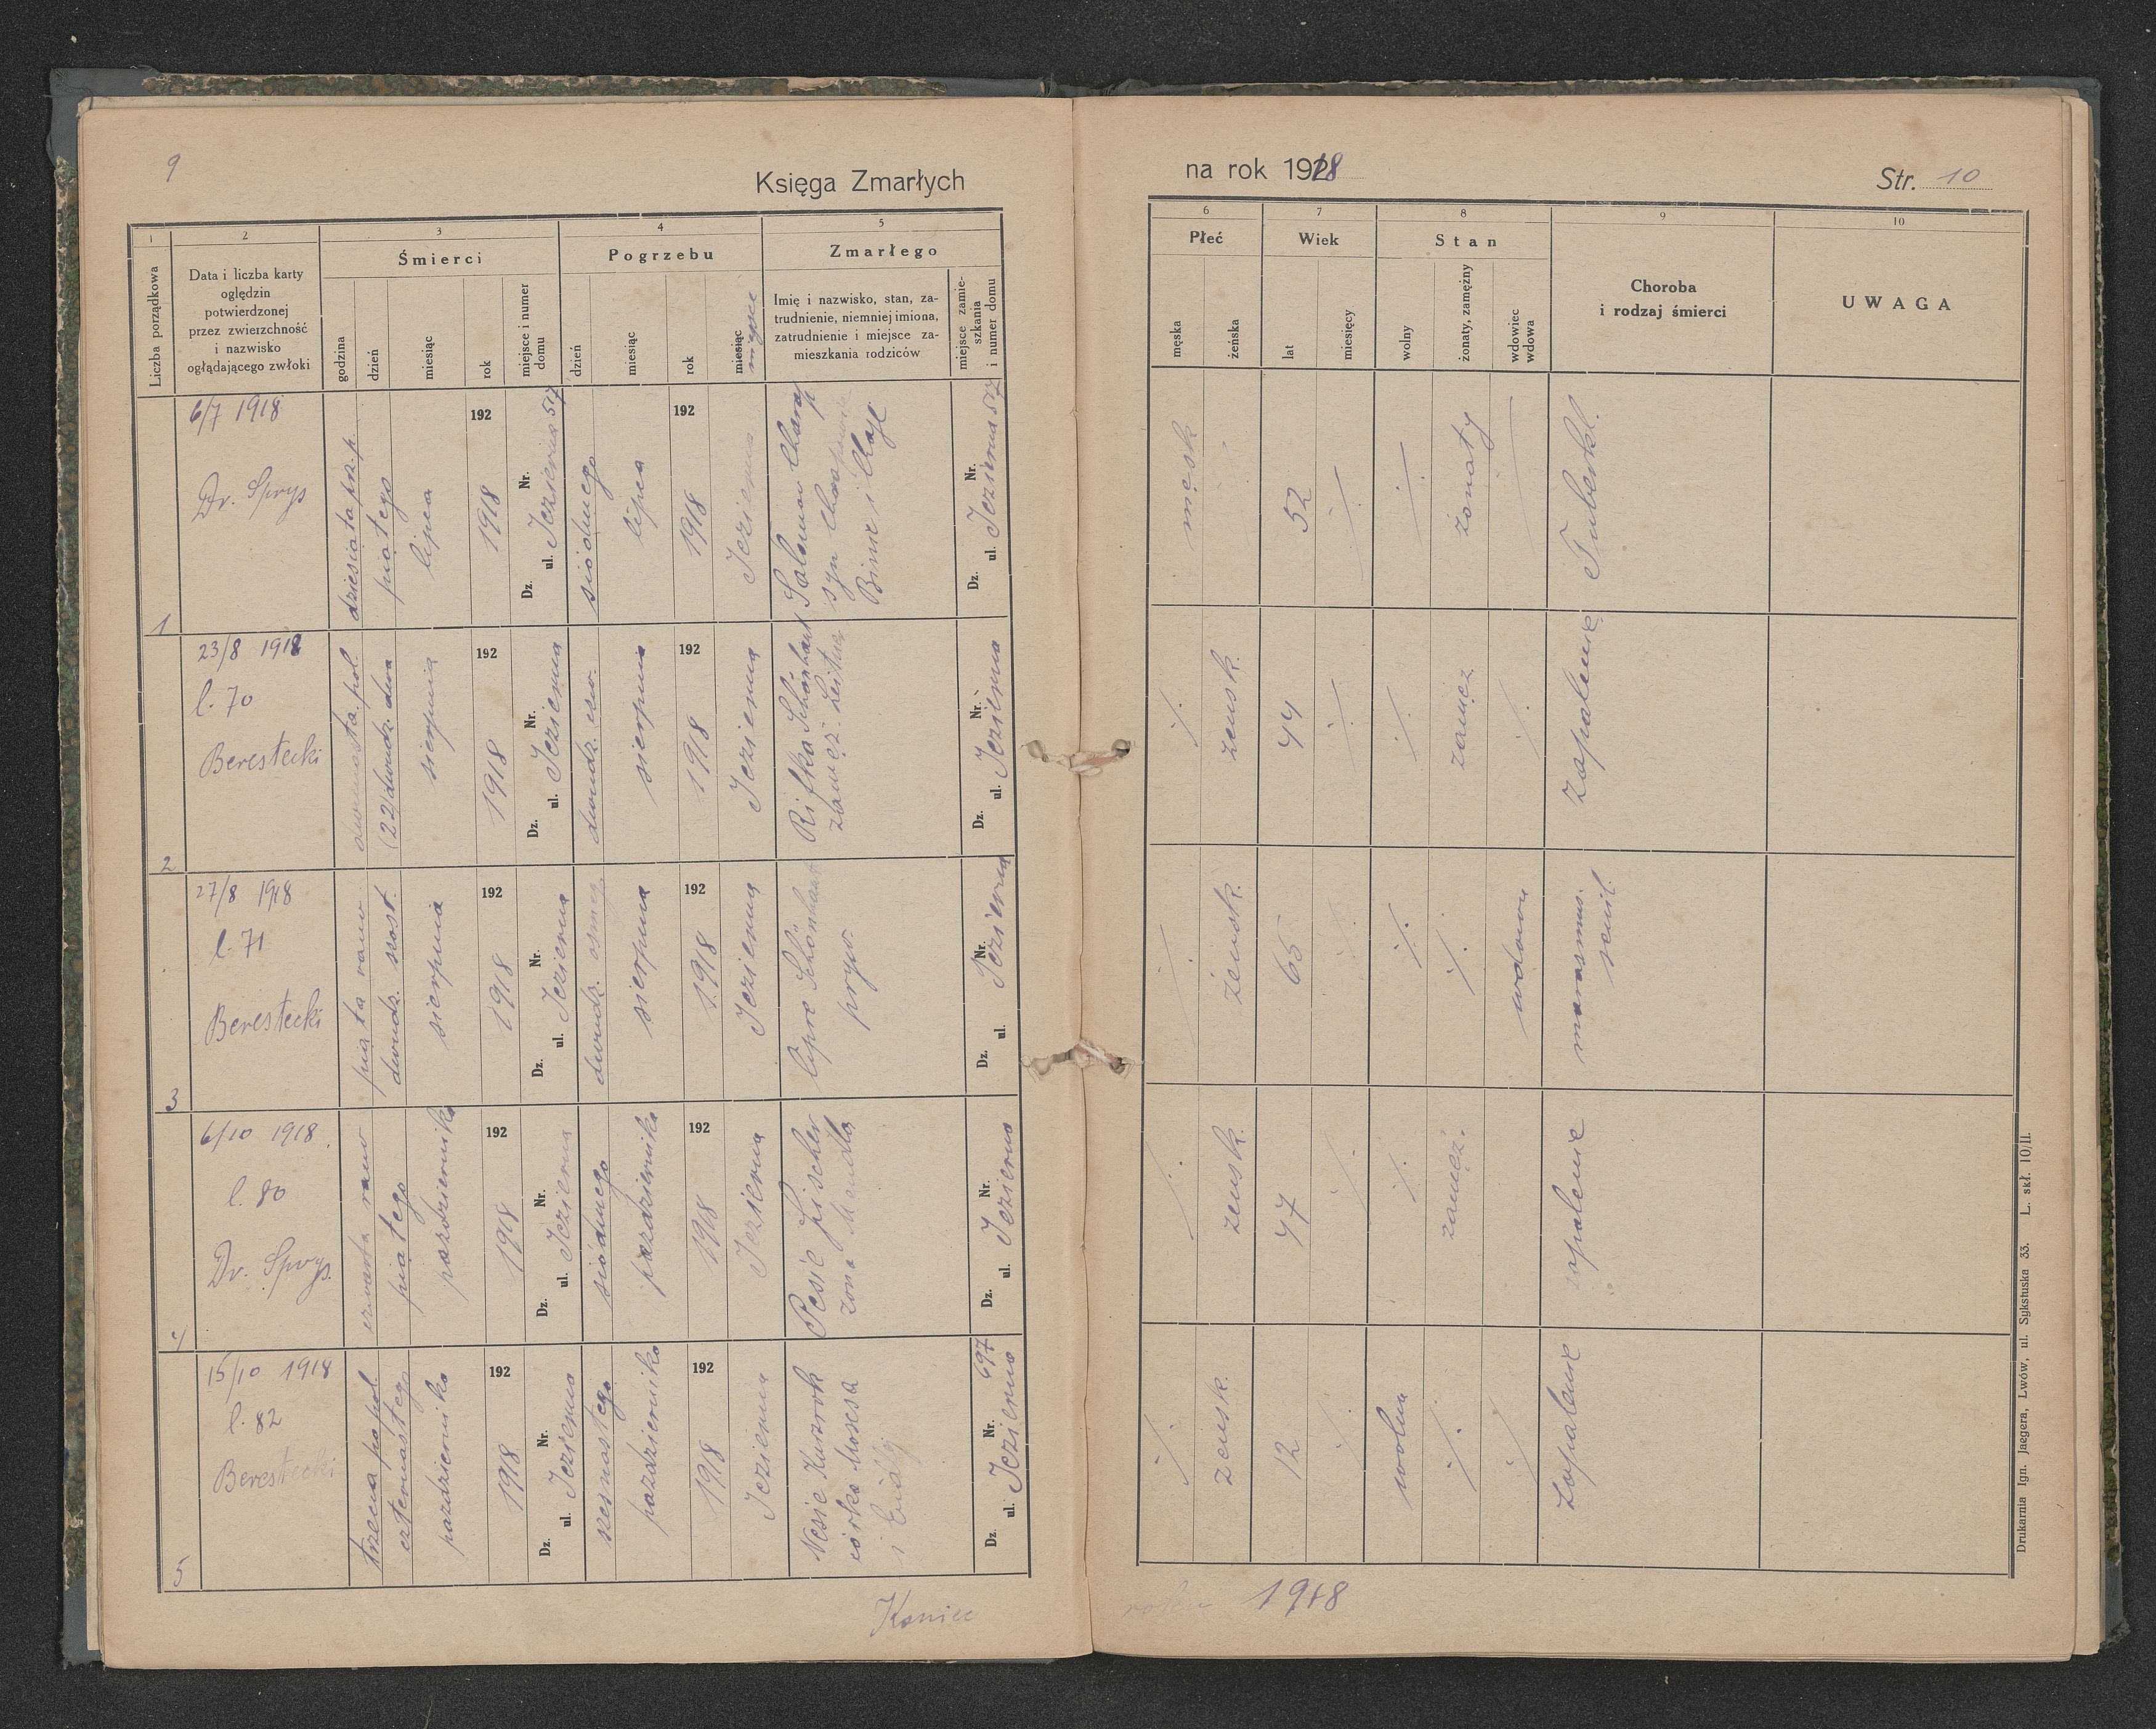 9
Księga Zmarłych
1
2
3
4
5
Liczba porządkowa
Data i liczba karty
oględzin
potwierdzonej
przez zwierzchność
i nazwisko
oglądającego zwłoki
Śmierci
godzina
dzień
miesiąc
rok
miejsce i numer
domu
Pogrzebu
dzień
miesiąc
rok
miesiąc
miejsce
Zmarłego
Imię i nazwisko, stan, za-
trudnienie, niemniej imiona,
zatrudnienie i miejsce za-
mieszkania rodziców
miejsce zamie-
szkania
i numer domu
1
6/7 1918
Dr. Sprys
dziesiąta prz. p.
piątego
lipca
192
1918
Dz. ul. Nr.
Jezierna 517
siódmego
lipca
192
1918
Jezierna
Salomon
syn
Bime i Chaje
Dz. ul. Nr.
Jezierna 517
2
23/8 1918
l. 70
Berestecki
dwunasta poł.
(22) dwudz. dwa
sierpnia
192
1918
Dz. ul. Nr.
Jezierna
dwudz. czw.
sierpnia
192
1918
Jezierna
Rifka Schönhaut
zamęż.
Dz. ul. Nr.
Jezierna
3
27/8 1918
l. 71
Berestecki
piąta rano
dwudz. szost.
sierpnia
192
1918
Dz. ul. Nr.
Jezierna
dwudz. osmeg.
sierpnia
192
1918
Jezierna
Cipre Schönhaut
pryw.
Dz. ul. Nr.
Jezierna
4
6/10 1918
l. 80
Dr. Sprys.
czwarta rano
piątego
października
192
1918
Dz. ul. Nr.
Jezierna
siódmego
października
192
1918
Jezierna
Pesie Fischer
żona Mendla
Dz. ul. Nr.
Jezierna
5
15/10 1918
l. 82
Berestecki
trzecia po poł.
czternastego
października
192
1918
Dz. ul. Nr.
Jezierna
szesnastego
października
192
1918
Jezierna
Nesie Kurzrok
córka Mosesa
i
Dz. ul. Nr.
Jezierna 697
Koniec
na rok 1918
Str. 10
6
7
8
9
10
Płeć
męska
żeńska
Wiek
lat
miesięcy
Stan
wolny
żonaty, zamężny
wdowiec
wdowa
Choroba
i rodzaj śmierci
UWAGA
męsk
52
·/·
·/·
żonaty
Tuberkl.
·/·
żensk.
44
·/·
·/·
zamęz
·/·
Zapalenie
·/·
żensk.
65
·/·
·/·
·/·
wdowa
marasmus.
senil.
·/·
żensk.
47
·/·
·/·
zamęż.
zapalenie
·/·
żensk.
12
·/·
wolna
·/·
·/·
Zapalenie
roku 1918
Drukarnia Ign. Jaegera, Lwów, ul. Sykstuska 33. L. skł. 10/II.